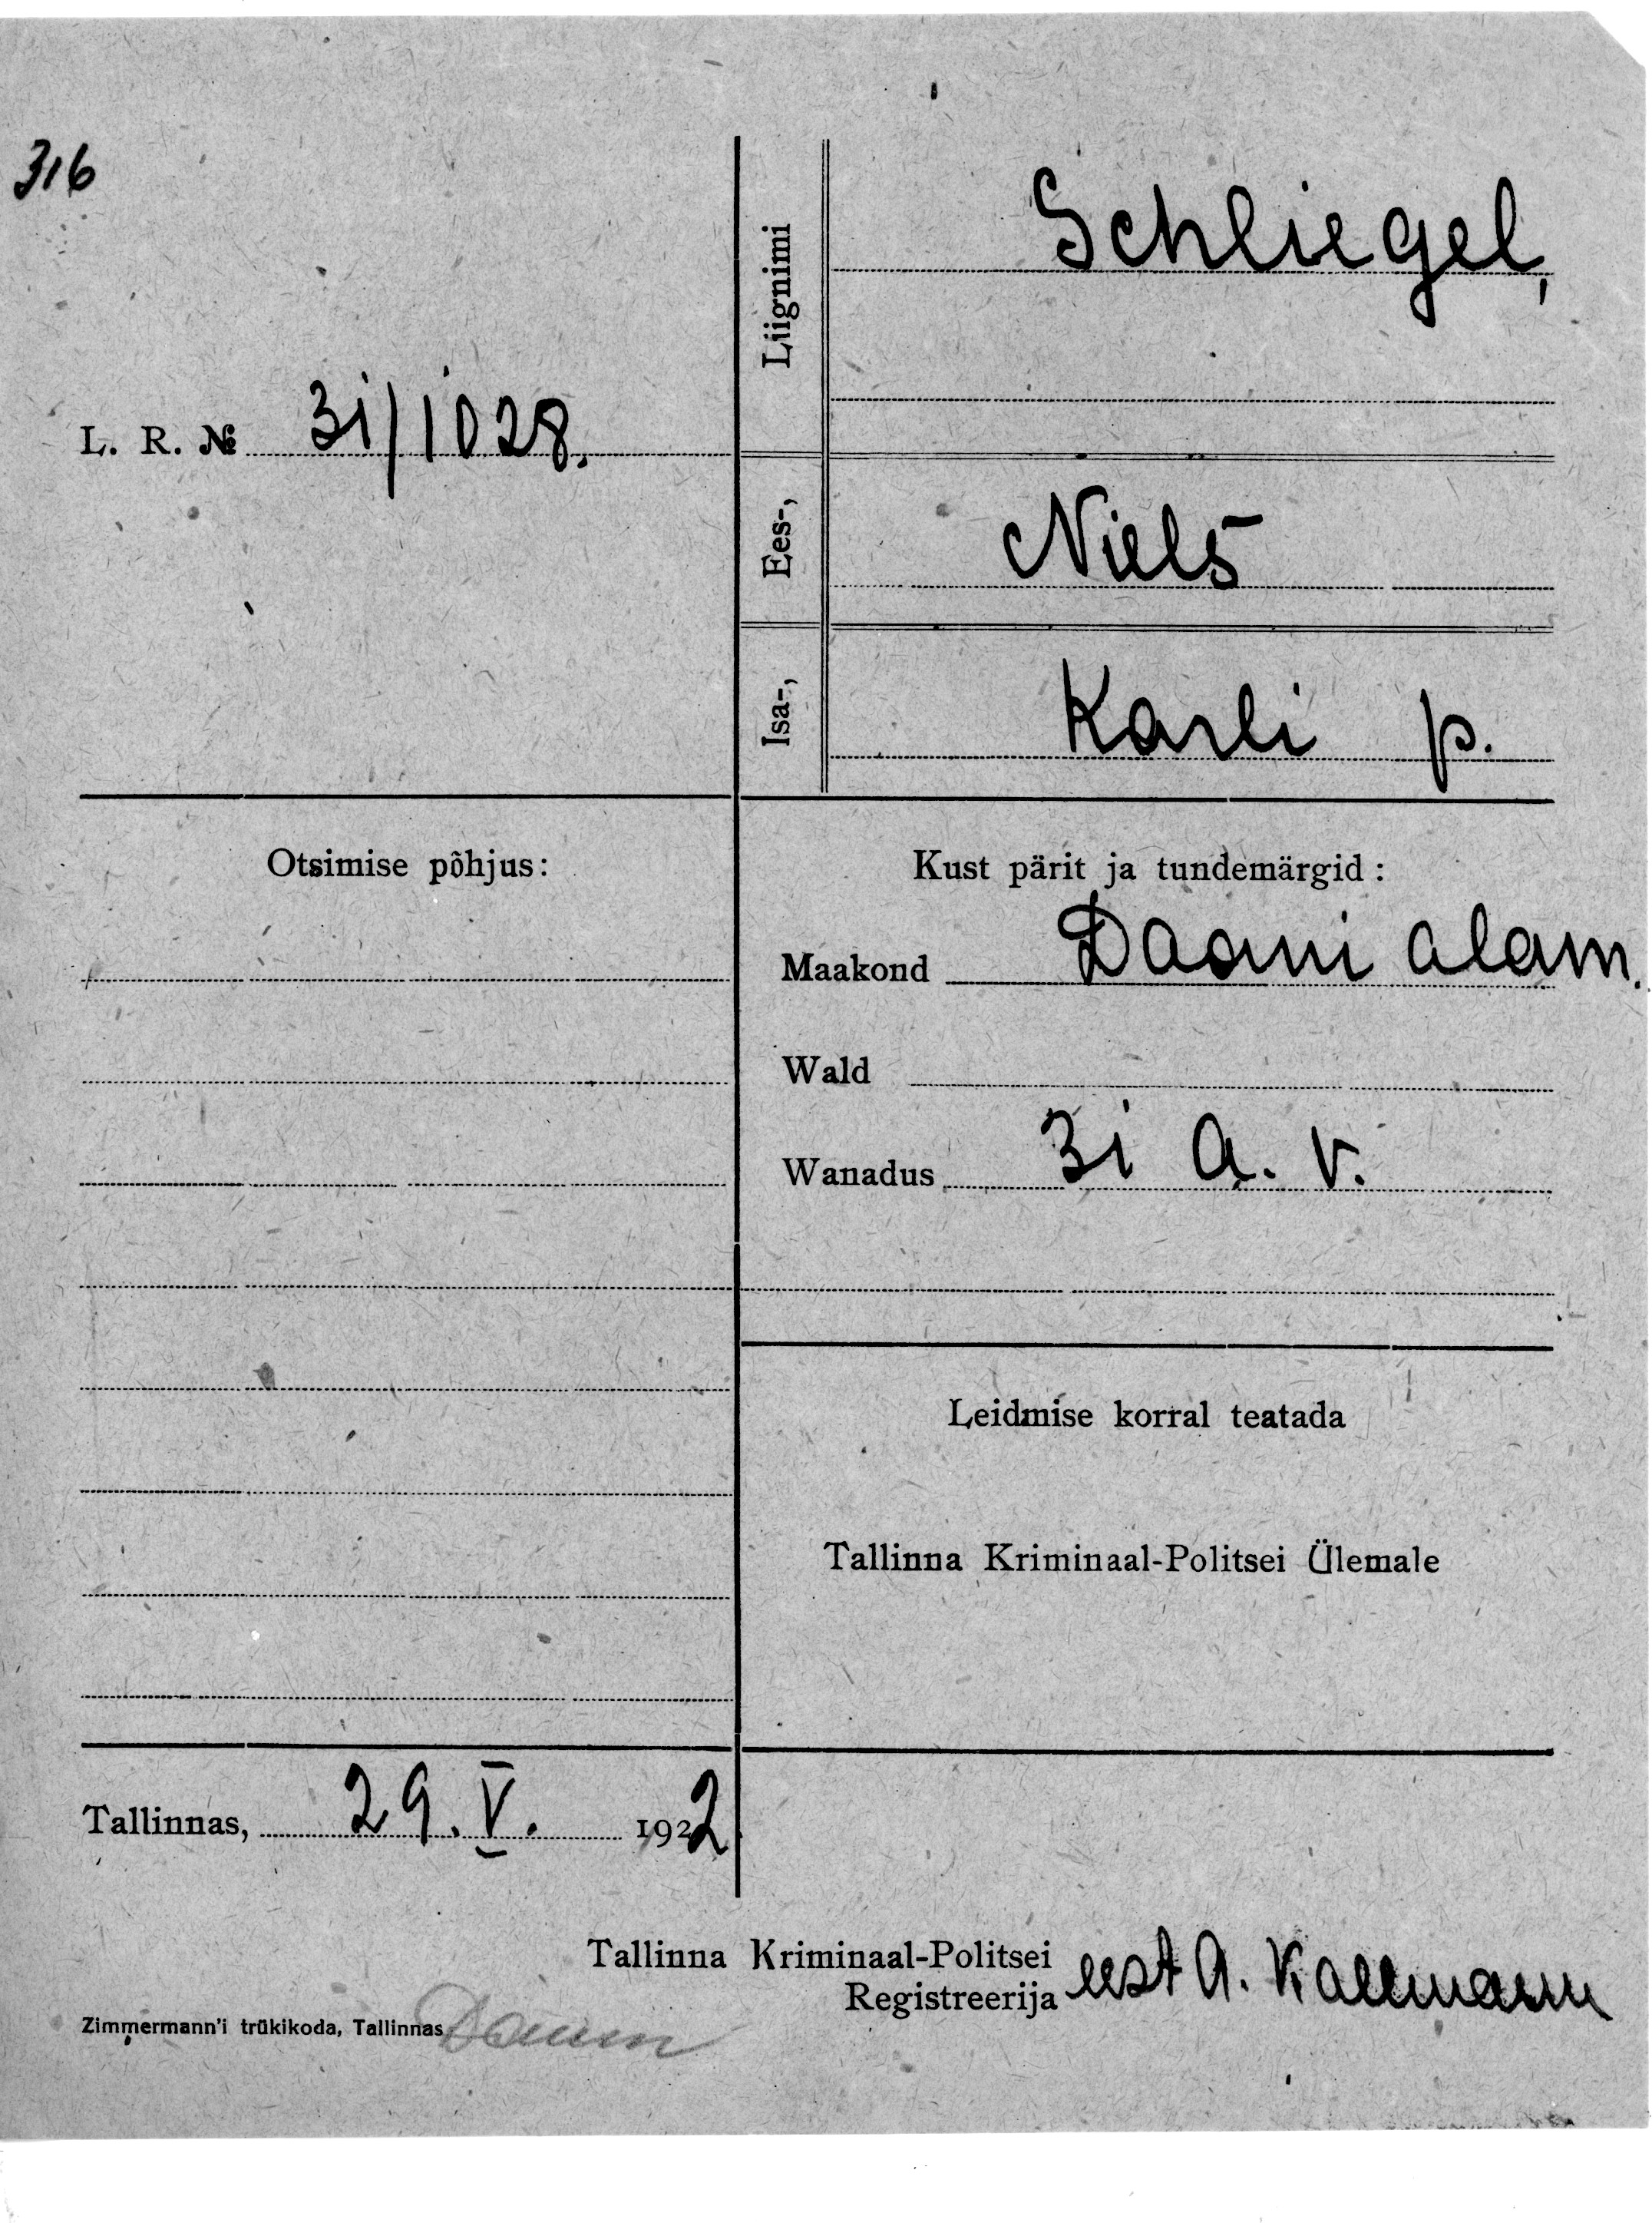 316
L. R. № 31/1028.
Liignimi Schliegel,
Ees-, Niels
Isa-, Karli p.
Otsimise põhjus:
Kust pärit ja tundemärgid:
Maakond Daani alam.
Wald
Wanadus 31 a. v.
Leidmise korral teatada
Tallinna Kriminaal-Politsei Ülemale
Tallinnas, 29. V. 1922
Tallinna Kriminaal-Politsei
Registreerija eest A. Kallmann
Zimmermann'i trükikoda, Tallinnas